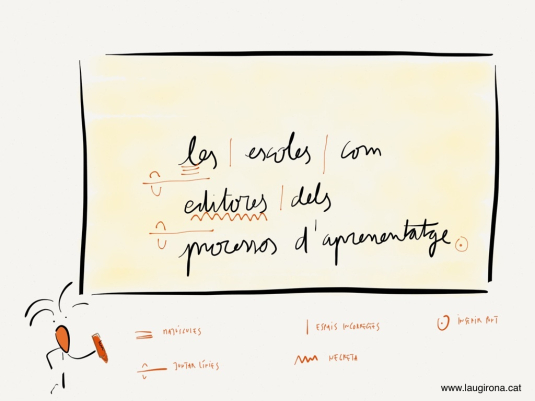 les escoles com
editores dels
processos d'aprenentatge
MAJÚSCULES
ESPAIS INCORRECTES
INSERIR PUNT
JUNTAR LÍNIES
NEGRETA
www.laugirona.cat